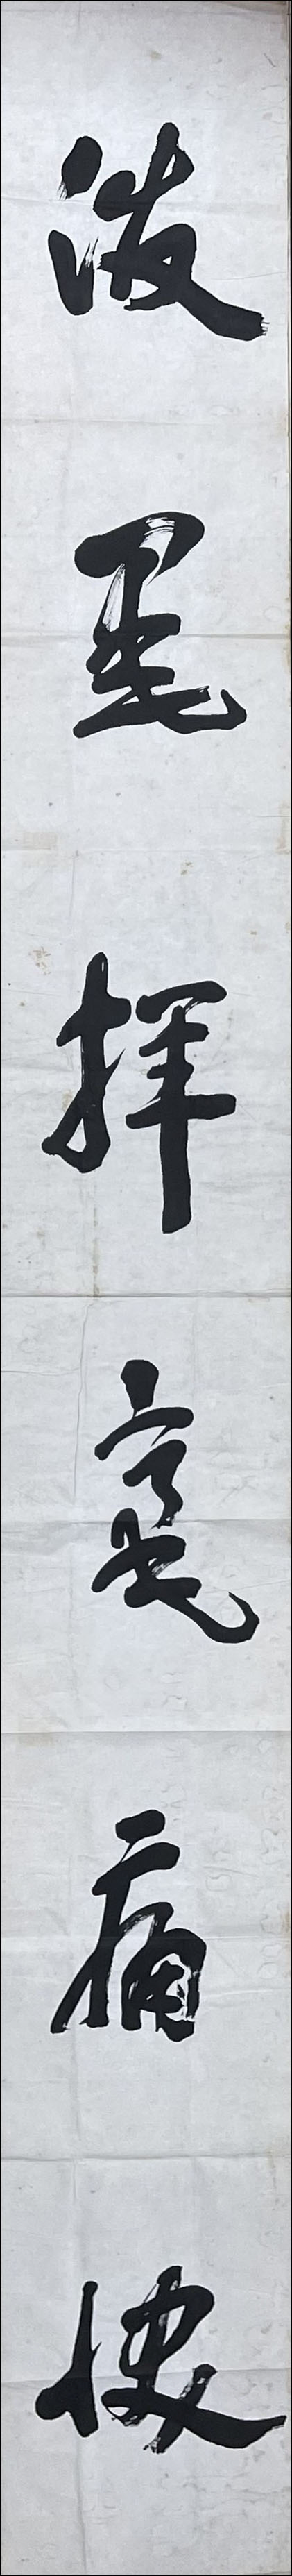 潑墨揮毫痛快